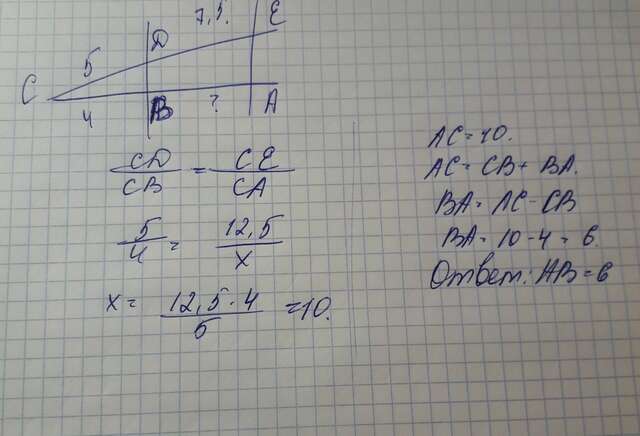 7,5.
E
D
5
C
4
B
?
A
CD/CB = CE/CA
5/4 = 12,5/x
x = 12,5·4/5 = 10.
AC = 10.
AC = CB + BA.
BA = AC - CB
BA = 10 - 4 = 6.
Ответ: AB = 6